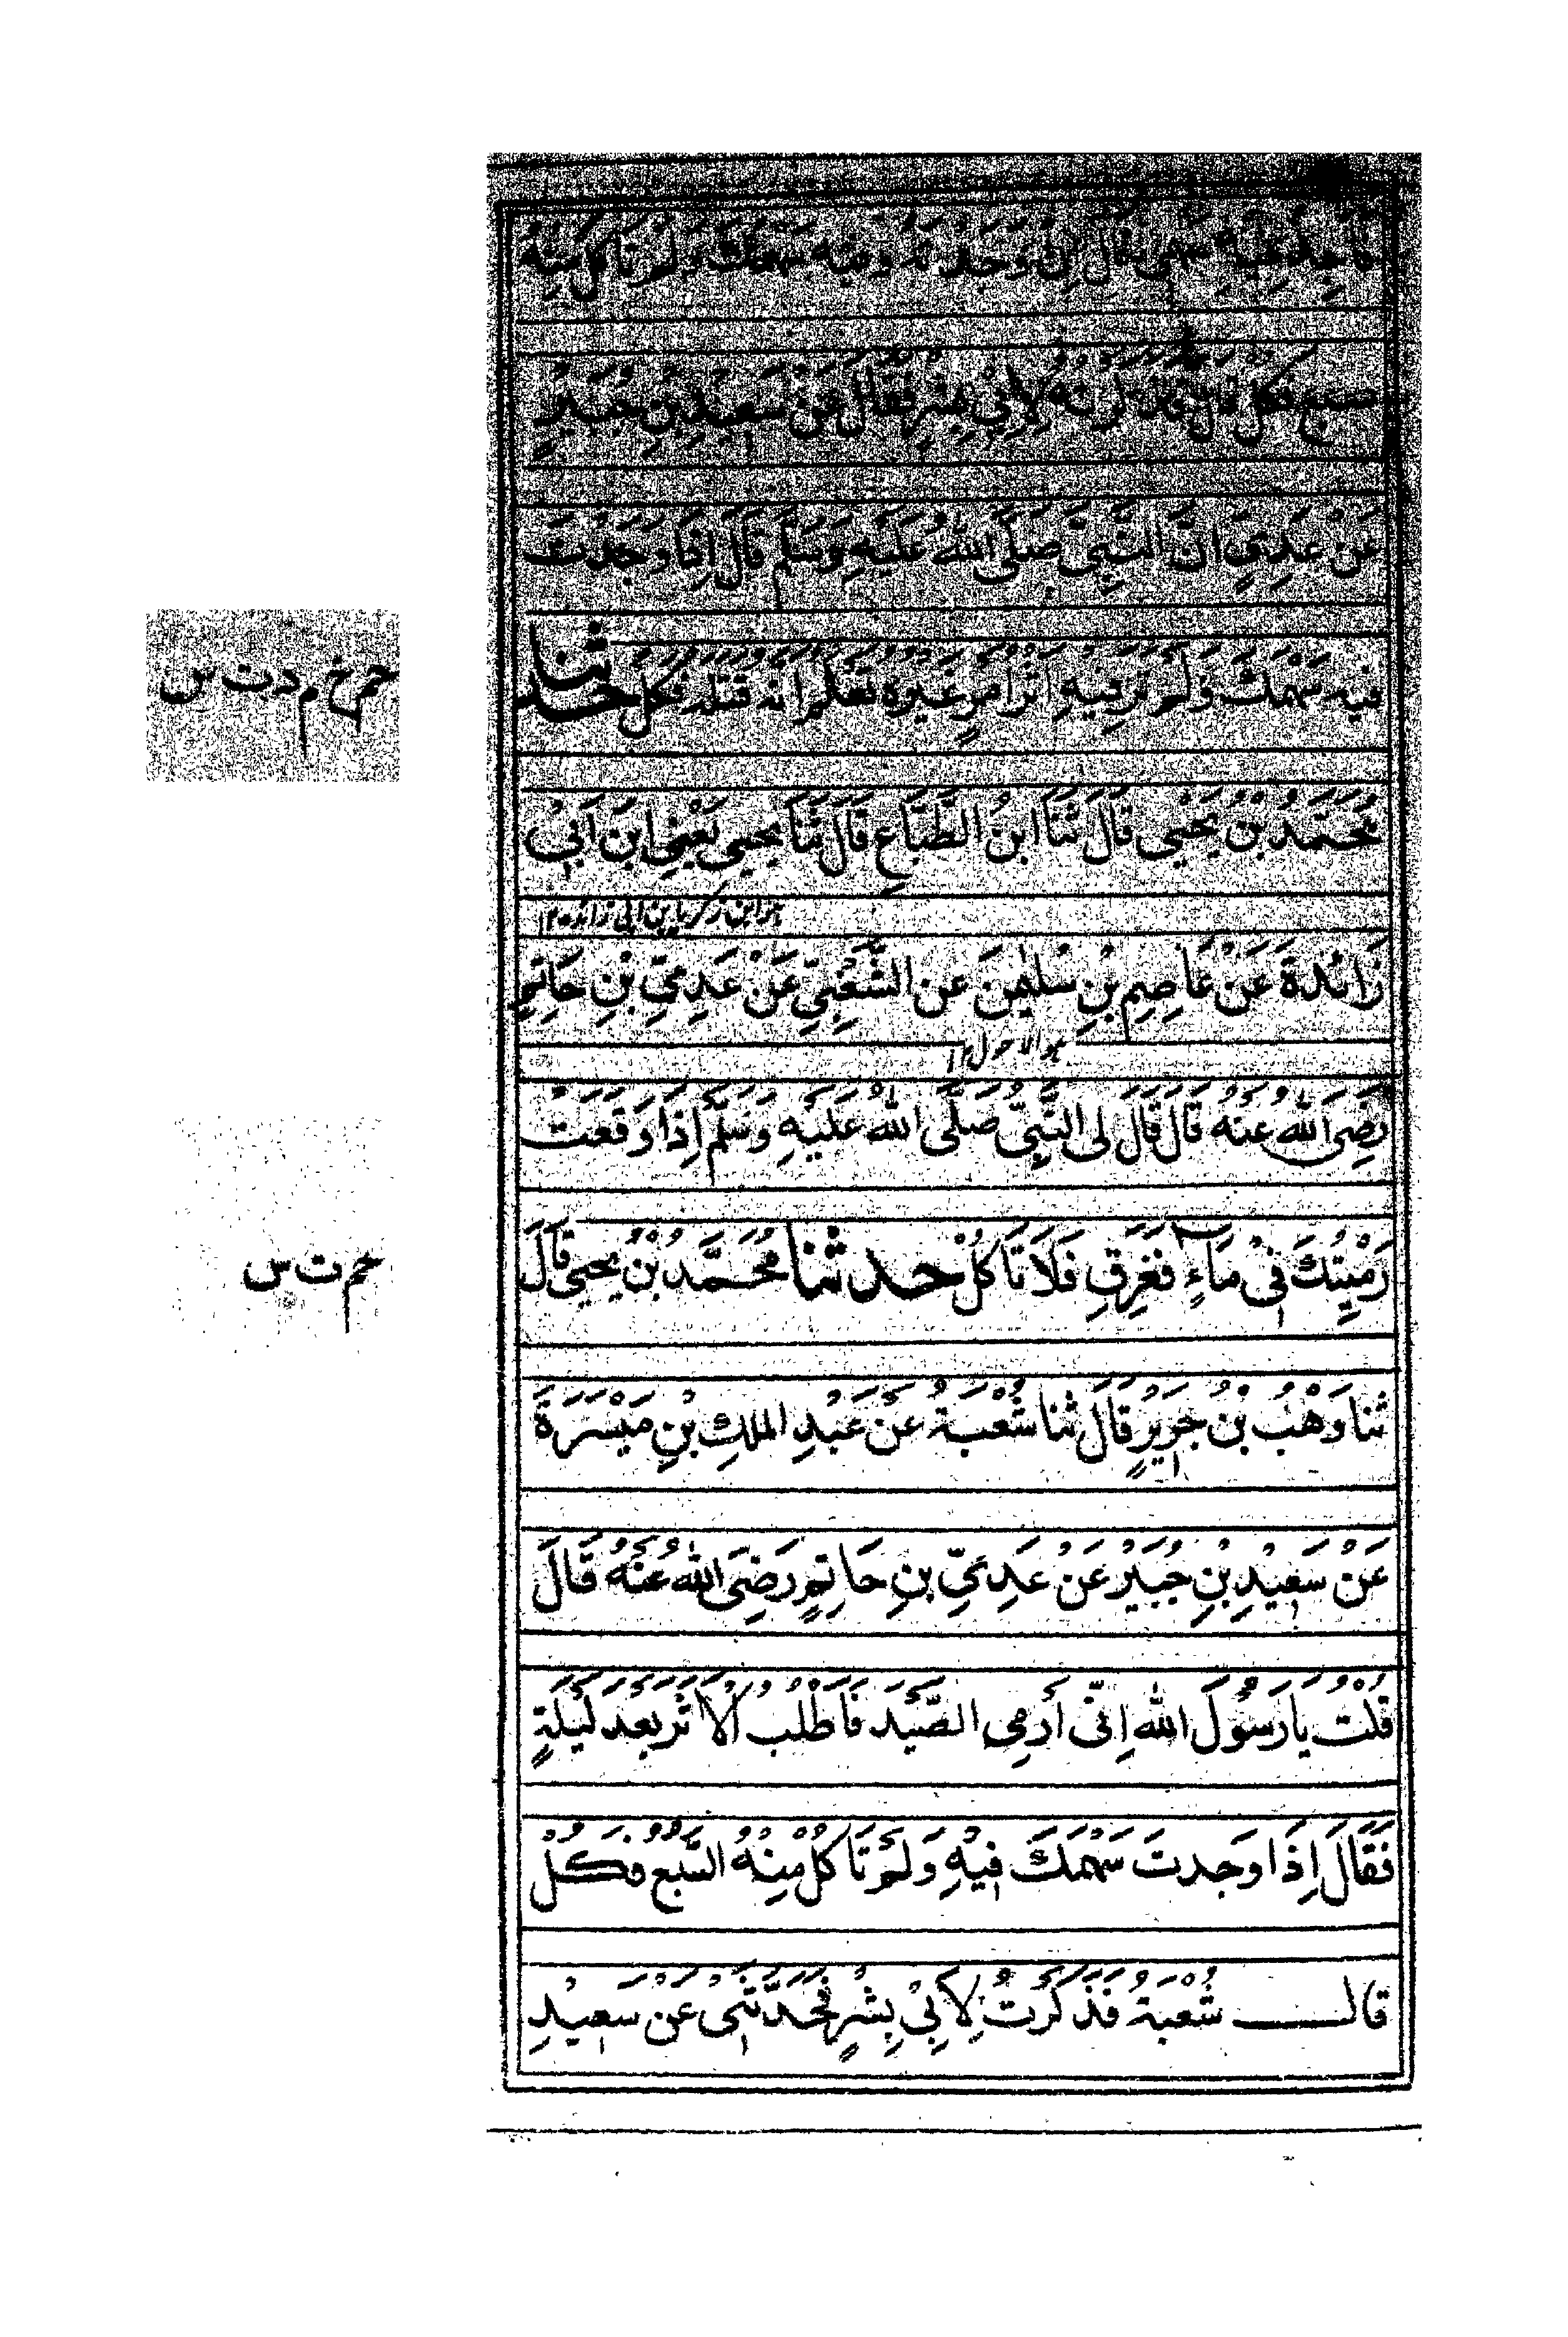 فَاَجِدُ فِيْهِ سَهْمِى فَقَالَ اِنْ وَجَدْتَهُ وَفِيْهِ سَهْمُكَ وَلَمْ تَاْكُلْ مِنْهُ
سَبُعٌ فَكُلْ قَالَ فَذَكَرْتُهُ لِاَبِىْ بِشْرٍ فَقَالَ عَنْ سَعِيْدِ بْنِ جُبَيْرٍ
عَنْ عَدِيٍّ اَنَّ النَّبِيَّ صَلَّى اللهُ عَلَيْهِ وَسَلَّمَ قَالَ اِذَا وَجَدْتَ
فِيْهِ سَهْمَكَ وَلَمْ تَرَ فِيْهِ اَثَرًا مِنْ غَيْرِهِ تَعْلَمُ اَنَّهُ قَتَلَهُ فَكُلْ حدثنا
مُحَمَّدُ بْنُ يَحْيٰى قَالَ ثَنَا ابْنُ الطَّبَّاعِ قَالَ ثَنَا يَحْيٰى يَعْنِى ابْنَ اَبِىْ
هو ابن زكريا بن ابى زائدة ١٢
زَائِدَةَ عَنْ عَاصِمِ بْنِ سُلَيْمٰنَ عَنِ الشَّعْبِيِّ عَنْ عَدِيِّ بْنِ حَاتِمٍ
هو الاحول ١٢
رَضِىَ اللهُ عَنْهُ قَالَ قَالَ لِى النَّبِيُّ صَلَّى اللهُ عَلَيْهِ وَسَلَّمَ اِذَا وَقَعَتْ
رَمِيَّتُكَ فِىْ مَاءٍ فَغَرِقَ فَلَا تَاْكُلْ حدثنا مُحَمَّدُ بْنُ يَحْيٰى قَالَ
ثَنَا وَهْبُ بْنُ جَرِيْرٍ قَالَ ثَنَا شُعْبَةُ عَنْ عَبْدِ الْمَلِكِ بْنِ مَيْسَرَةَ
عَنْ سَعِيْدِ بْنِ جُبَيْرٍ عَنْ عَدِيِّ بْنِ حَاتِمٍ رَضِىَ اللهُ عَنْهُ قَالَ
قُلْتُ يَا رَسُوْلَ اللهِ اِنِّى اَرْمِى الصَّيْدَ فَاَطْلُبُ الْاَثَرَ بَعْدَ لَيْلَةٍ
فَقَالَ اِذَا وَجَدتَ سَهْمَكَ فِيْهِ وَلَمْ تَاْكُلْ مِنْهُ السَّبُعُ فَكُلْ
قال شُعْبَةُ فَذَكَرْتُ لِاَبِىْ بِشْرٍ فَحَدَّثَنِى عَنْ سَعِيْدِ
حم خ م د ت س
حم ت س